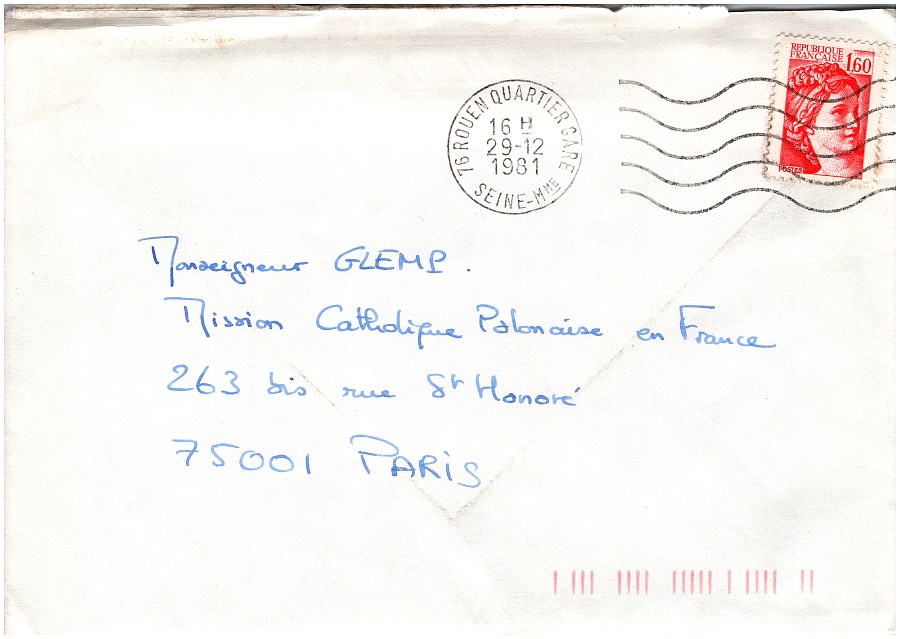 REPUBLIQUE
FRANCAISE 1,60
POSTES
76 ROUEN QUARTIER GARE
16 H
29-12
1981
SEINE-MME
Monseigneur GLEMP.
Mission Catholique Polonaise en France
263 bis rue St Honoré
75001 PARIS